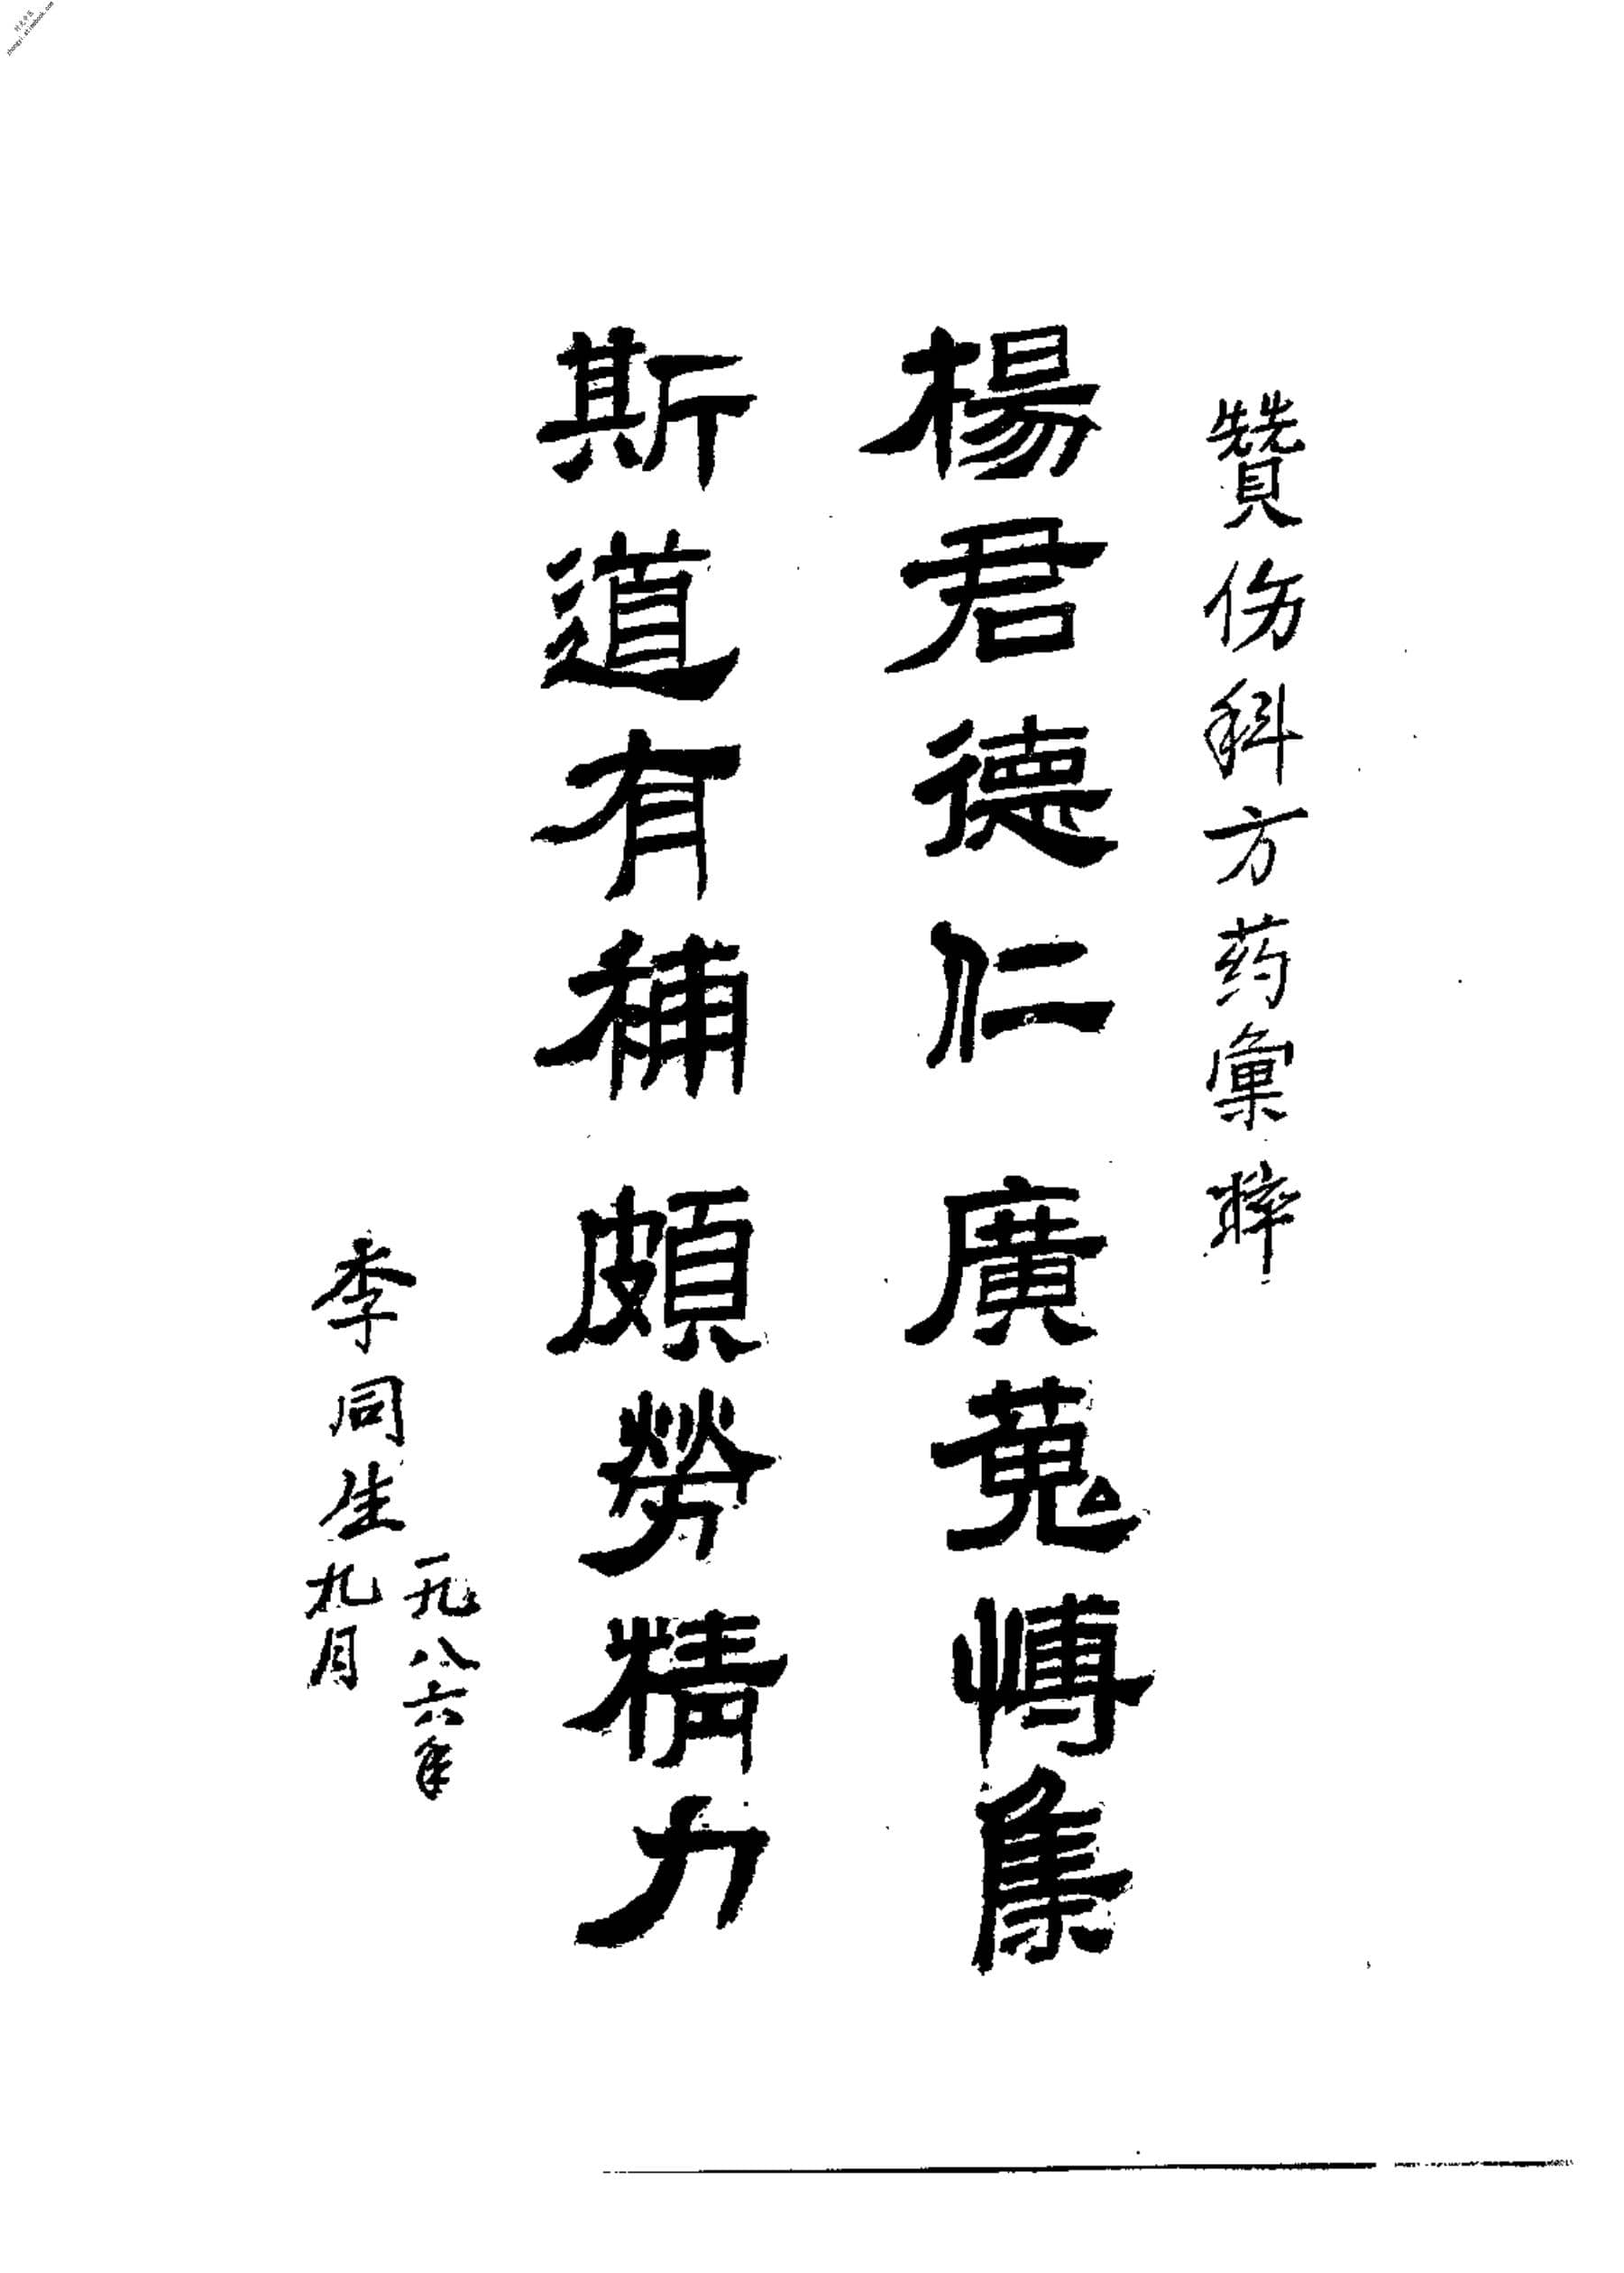 贊伤科方药彙粹
楊君德仁廣蒐愽集
斯道有補頗勞精力
李同生
一九八六年
九月
时光中医
zhongyi.atimebook.com